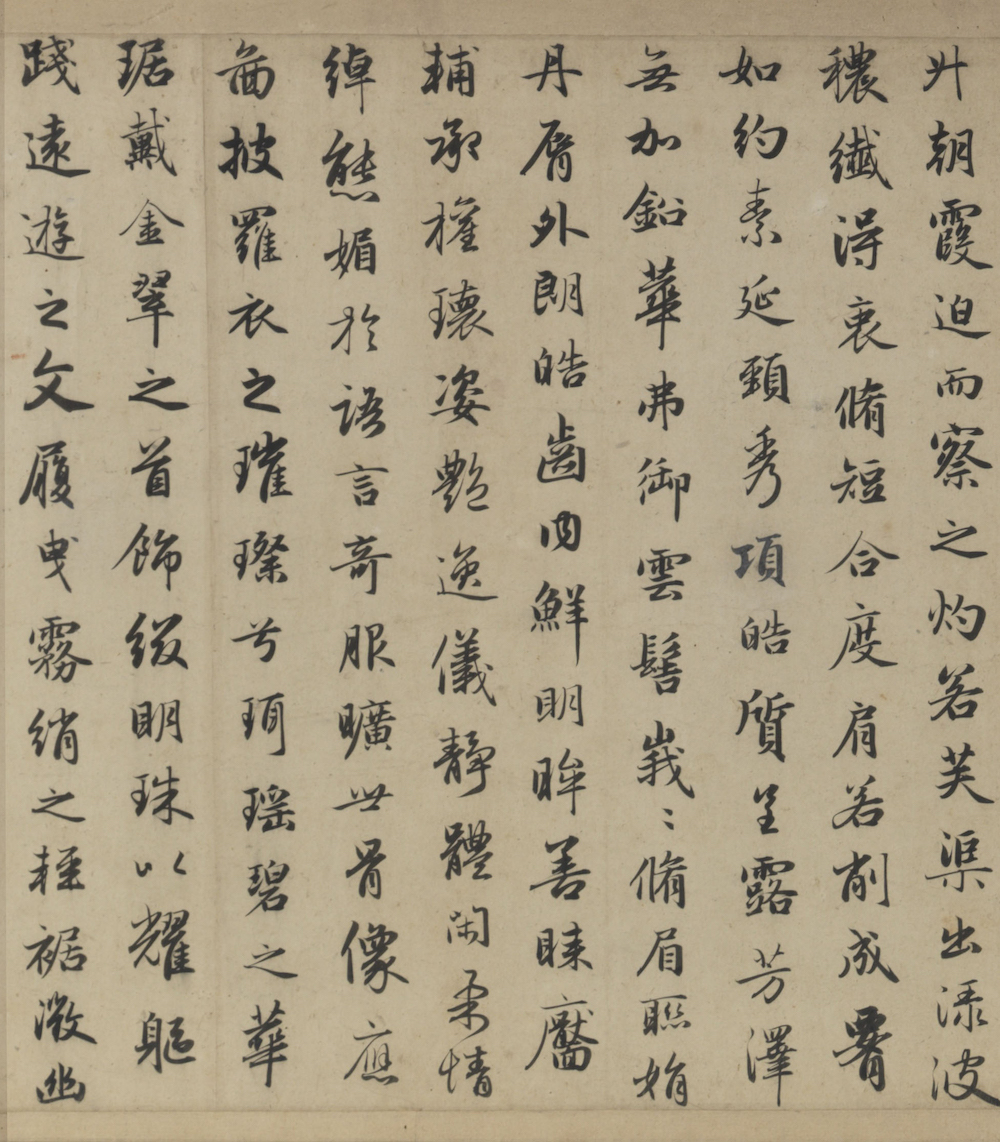 升朝霞迫而察之灼若芙渠出渌波
穠纖得衷脩短合度肩若削成署
如約素延頸秀項皓質呈露芳澤
無加鉛華弗御雲髻峩〻脩眉聮娟
丹脣外朗皓齒内鮮明眸善睐靨
輔承權瓌姿艷逸儀静體閑柔情
綽態媚於語言奇服曠世骨像應
啚披羅衣之璀璨兮珥瑶碧之華
琚戴金翠之首飾綴明珠以耀軀
踐遠遊之文履曳霧綃之輕裾微幽